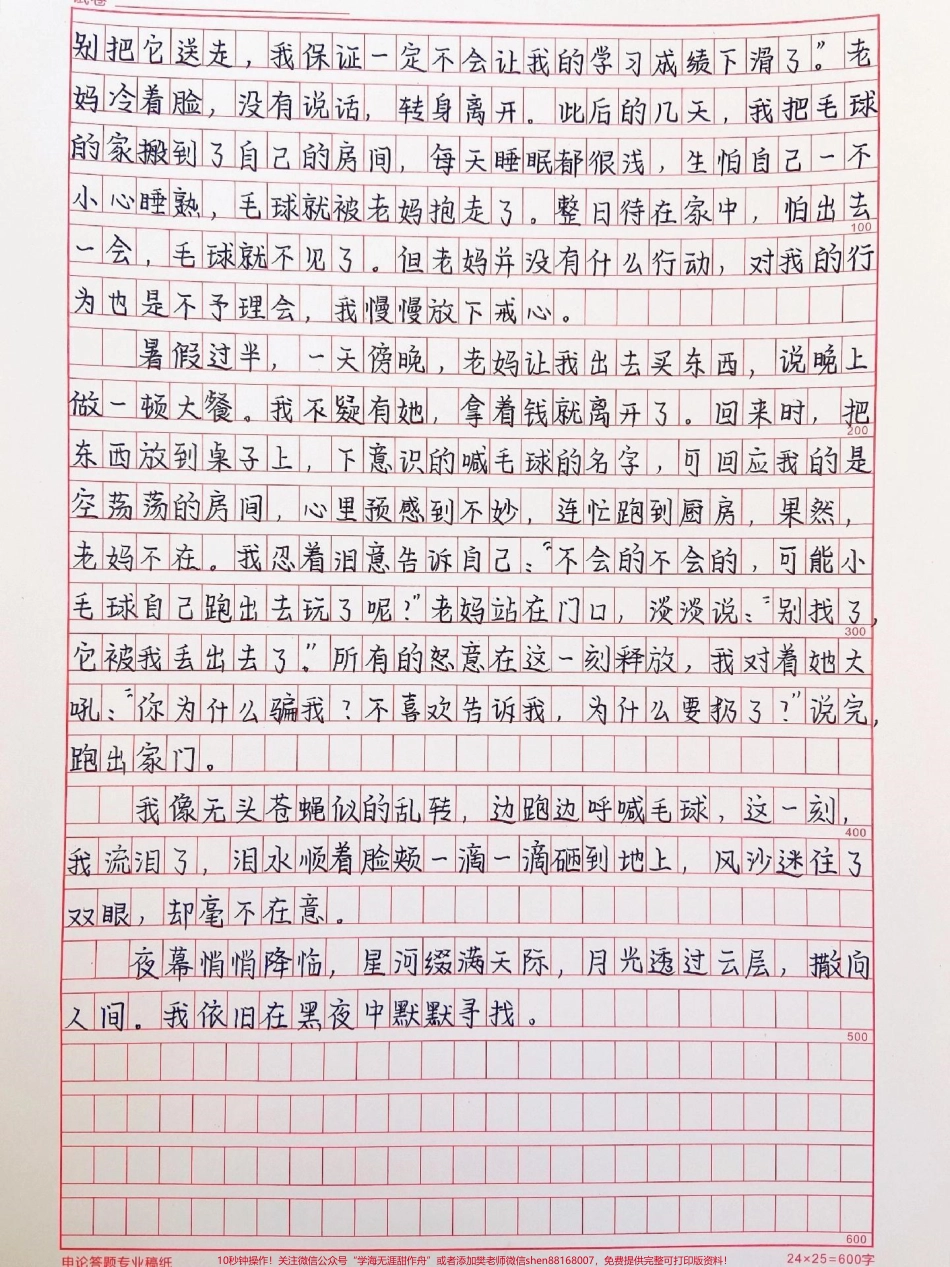 别把它送走，我保证一定不会让我的学习成绩下滑了。”老
妈冷着脸，没有说话，转身离开。此后的几天，我把毛球
的家搬到了自己的房间，每天睡眠都很浅，生怕自己一不
小心睡熟，毛球就被老妈抱走了。整日待在家中，怕出去
100
一会，毛球就不见了。但老妈并没有什么行动，对我的行
为也是不予理会，我慢慢放下戒心。
暑假过半，一天傍晚，老妈让我出去买东西，说晚上
做一顿大餐。我不疑有她，拿着钱就离开了。回来时，把
200
东西放到桌子上，下意识的喊毛球的名字，可回应我的是
空荡荡的房间，心里预感到不妙，连忙跑到厨房，果然，
老妈不在。我忍着泪意告诉自己：“不会的不会的，可能小
毛球自己跑出去玩了呢？”老妈站在门口，淡淡说：“别找了，
300
它被我丢出去了。”所有的怒意在这一刻释放，我对着她大
吼：“你为什么骗我？不喜欢告诉我，为什么要扔了？”说完，
跑出家门。
我像无头苍蝇似的乱转，边跑边呼喊毛球，这一刻，
400
我流泪了，泪水顺着脸颊一滴一滴砸到地上，风沙迷住了
双眼，却毫不在意。
夜幕悄悄降临，星河缀满天际，月光透过云层，撒向
人间。我依旧在黑夜中默默寻找。
500
600
申论答题专业稿纸 10秒钟操作！关注微信公众号“学海无涯甜作舟”或者添加樊老师微信shen88168007，免费提供完整可打印版资料！ 24×25=600字